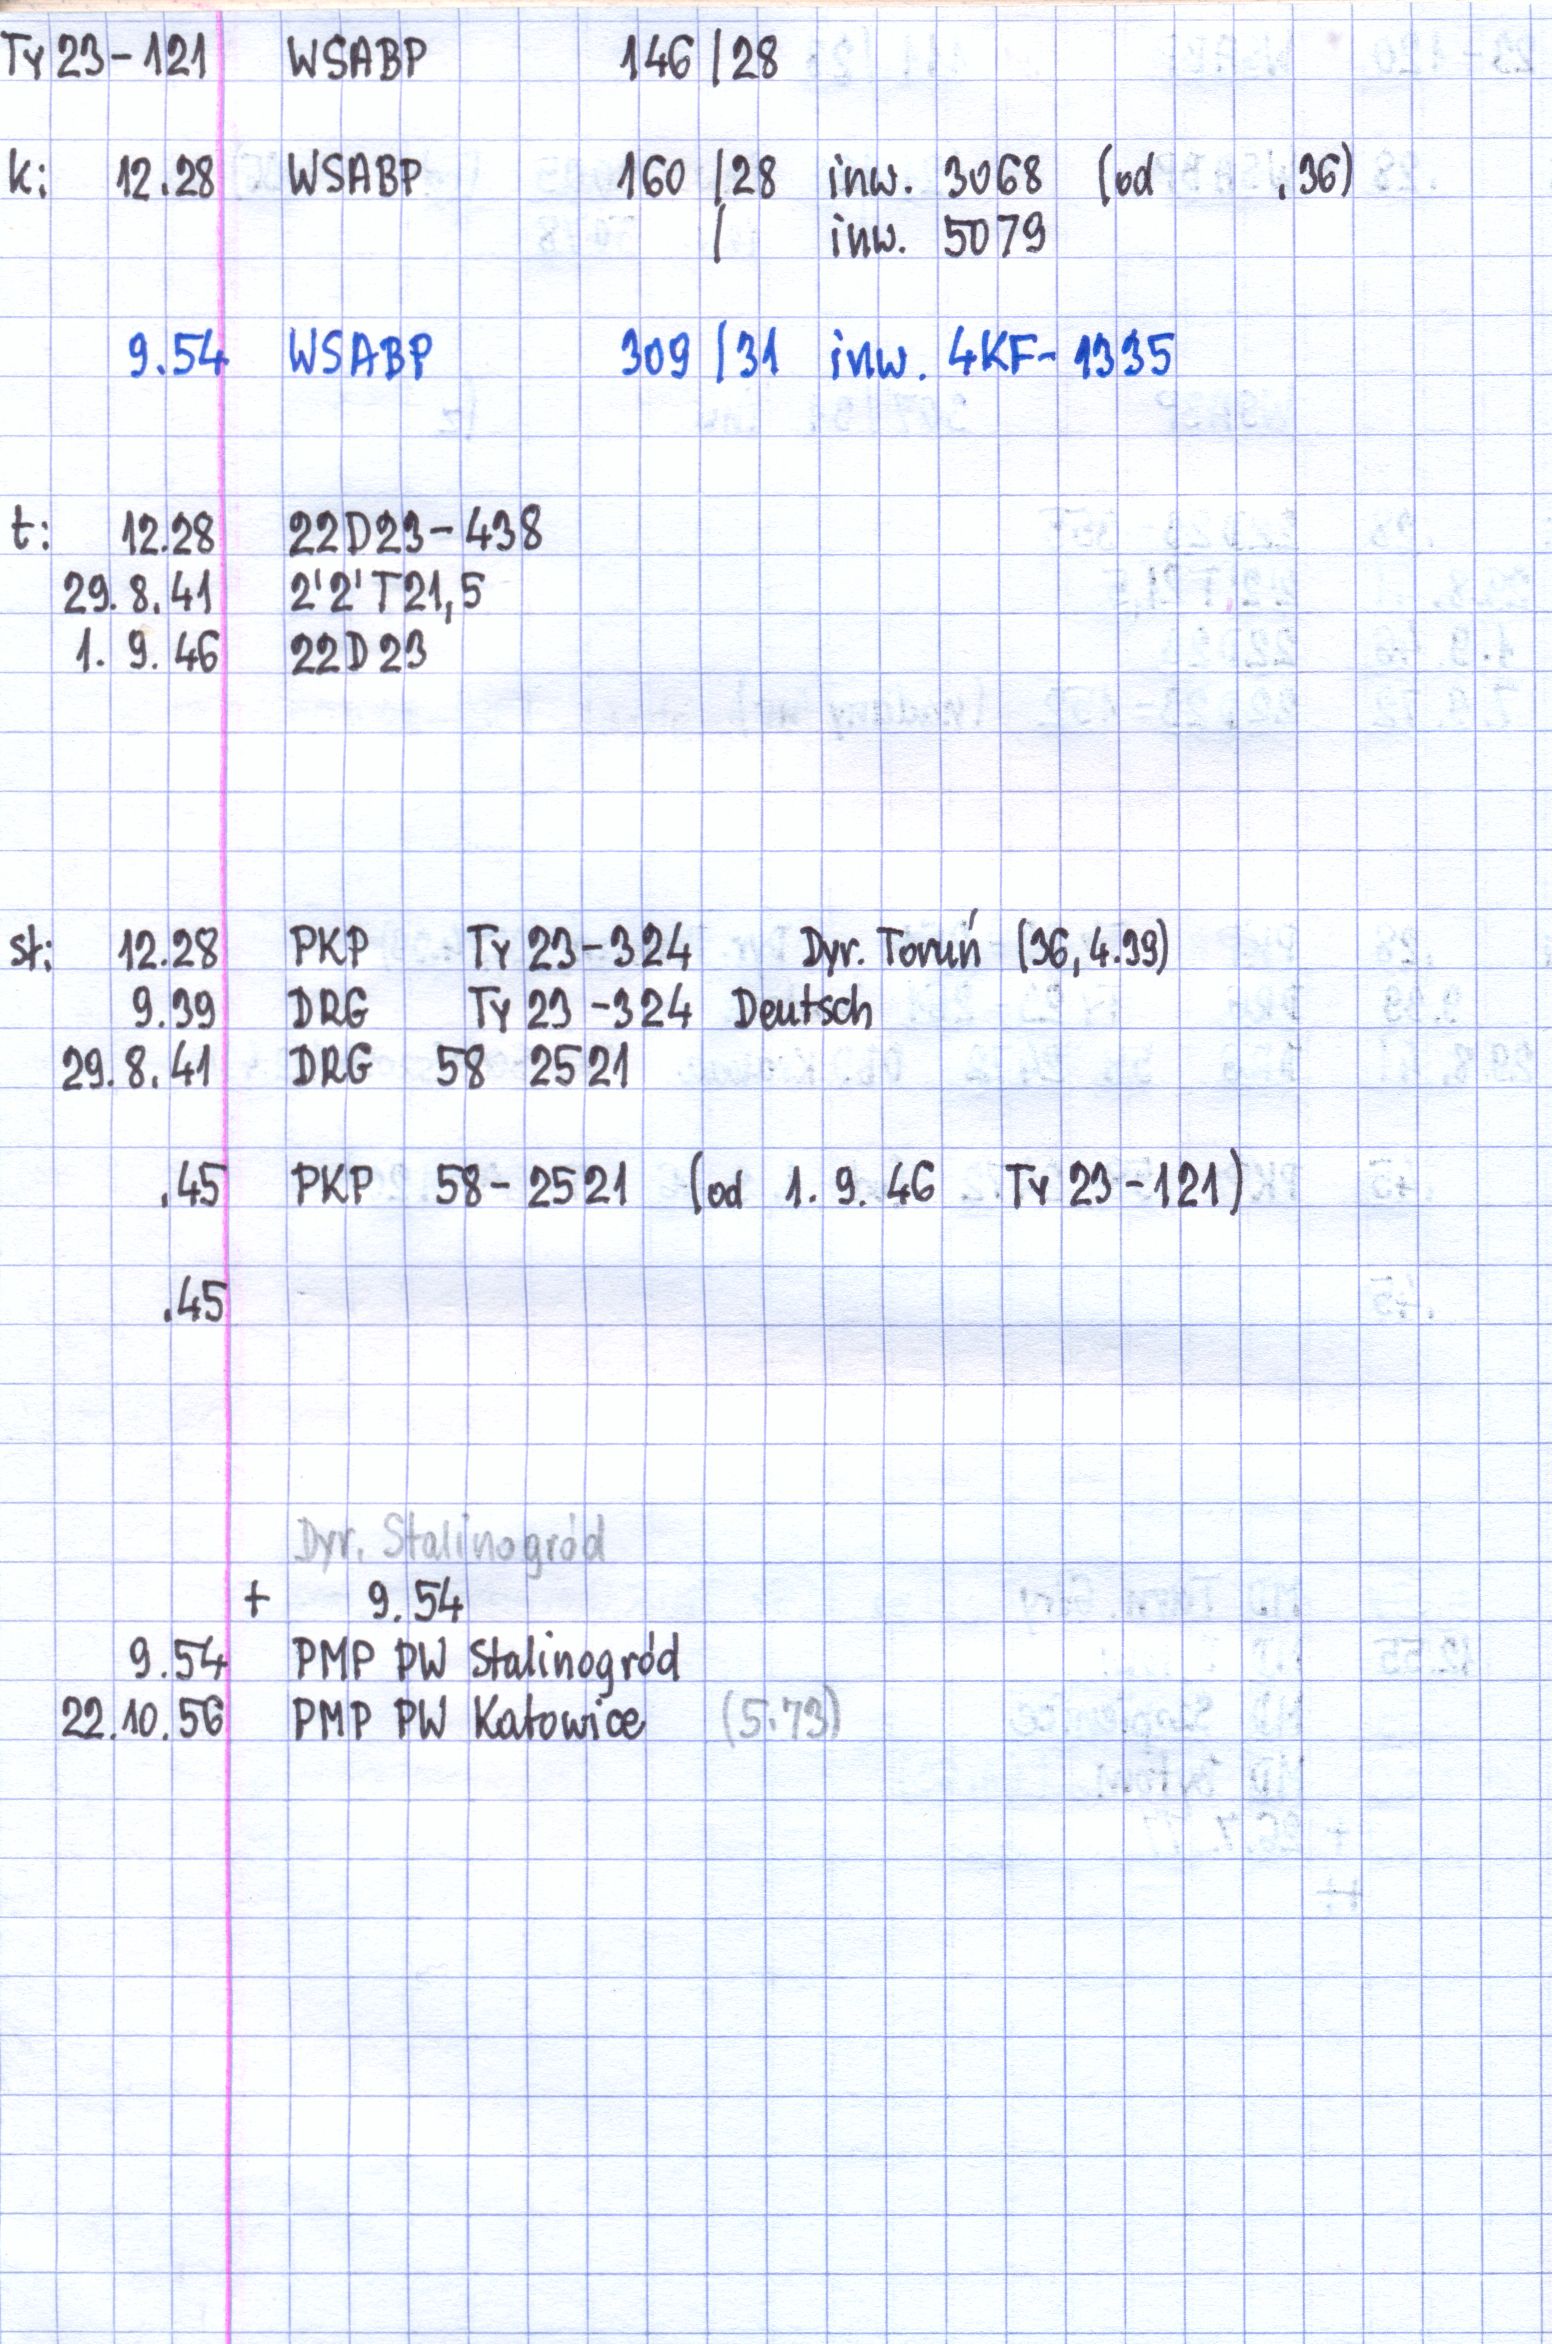 Ty 23-121 WSABP 146/28
k: 12.28 WSABP 160/28 inw. 3068 (od .36)
/ inw. 5079
9.54 WSABP 309/31 inw. 4KF-1335
t: 12.28 22D23-438
29.8.41 2'2'T21,5
1.9.46 22D23
st: 12.28 PKP Ty 23-324 Dyr. Toruń (36, 4.39)
9.39 DRG Ty 23-324 Deutsch
29.8.41 DRG 58 2521
.45 PKP 58-2521 (od 1.9.46 Ty 23-121)
.45
Dyr. Stalinogród
+ 9.54
9.54 PMP PW Stalinogród
22.10.56 PMP PW Katowice (5.73)